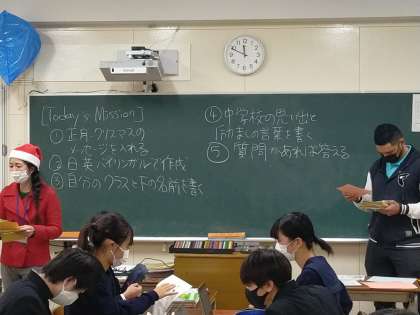 [Today's Mission]
① 正月・クリスマスの
メッセージを入れる
② 日英バイリンガルで作成
③ 自分のクラスと下の名前を書く
④ 中学校の思い出と
はげましの言葉を書く
⑤ 質問があれば答える